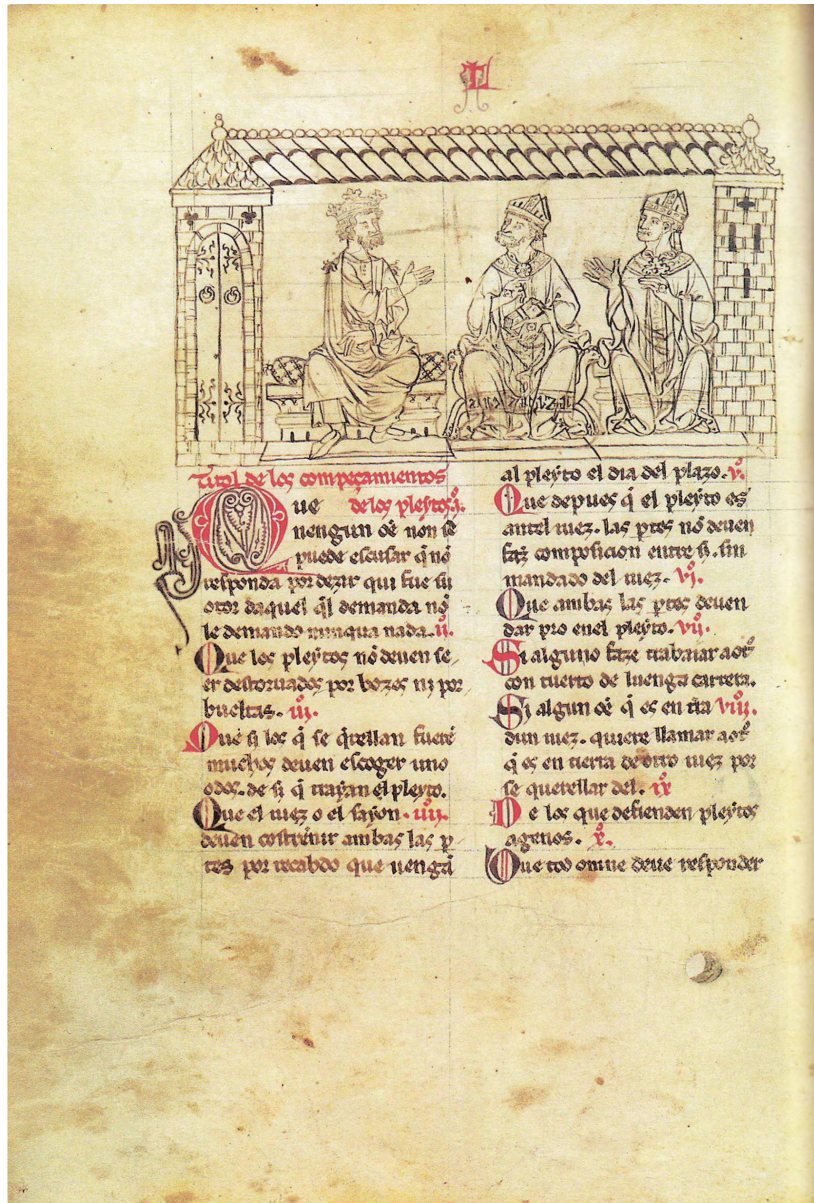 Titol de los compeçamientos
de los pleytos. i.º
Que
nengun oē non se
puede escusar q̄ nō
responda por dezir qui fue su
otor daquel q̄l demanda nō
le demando nunqua nada. ii.
Que los pleytos nō deuen se
er destoruados por bozes ni por
bueltas. iii.
Que si los q̄ se q̄rellan fuerē
muchos deuen escoger uno
o dos. de si q̄ trayan el pleyto.
Que el iuez o el sayon. iiii.
deuen costrēnir ambas las p
tes por recabdo que uengā
al pleyto el dia del plazo. v.º
Que depues q̄ el pleyto es
antel iuez. las ptes nō deuen
faz̄ composicion entre si. sin
mandado del iuez. vi.º
Que ambas las ptes deuen
dar pro en el pleyto. vii.º
Si alguno faze trabaiar a otº
con tuerto de luenga carrera.
Si algun oē q̄ es en tr̄a viii.º
dun iuez. quiere llamar a otº
q̄ es en tierra de otro iuez por
se querellar del. ix
De los que defienden pleytos
agenos. x.º
Que too omne deue responder